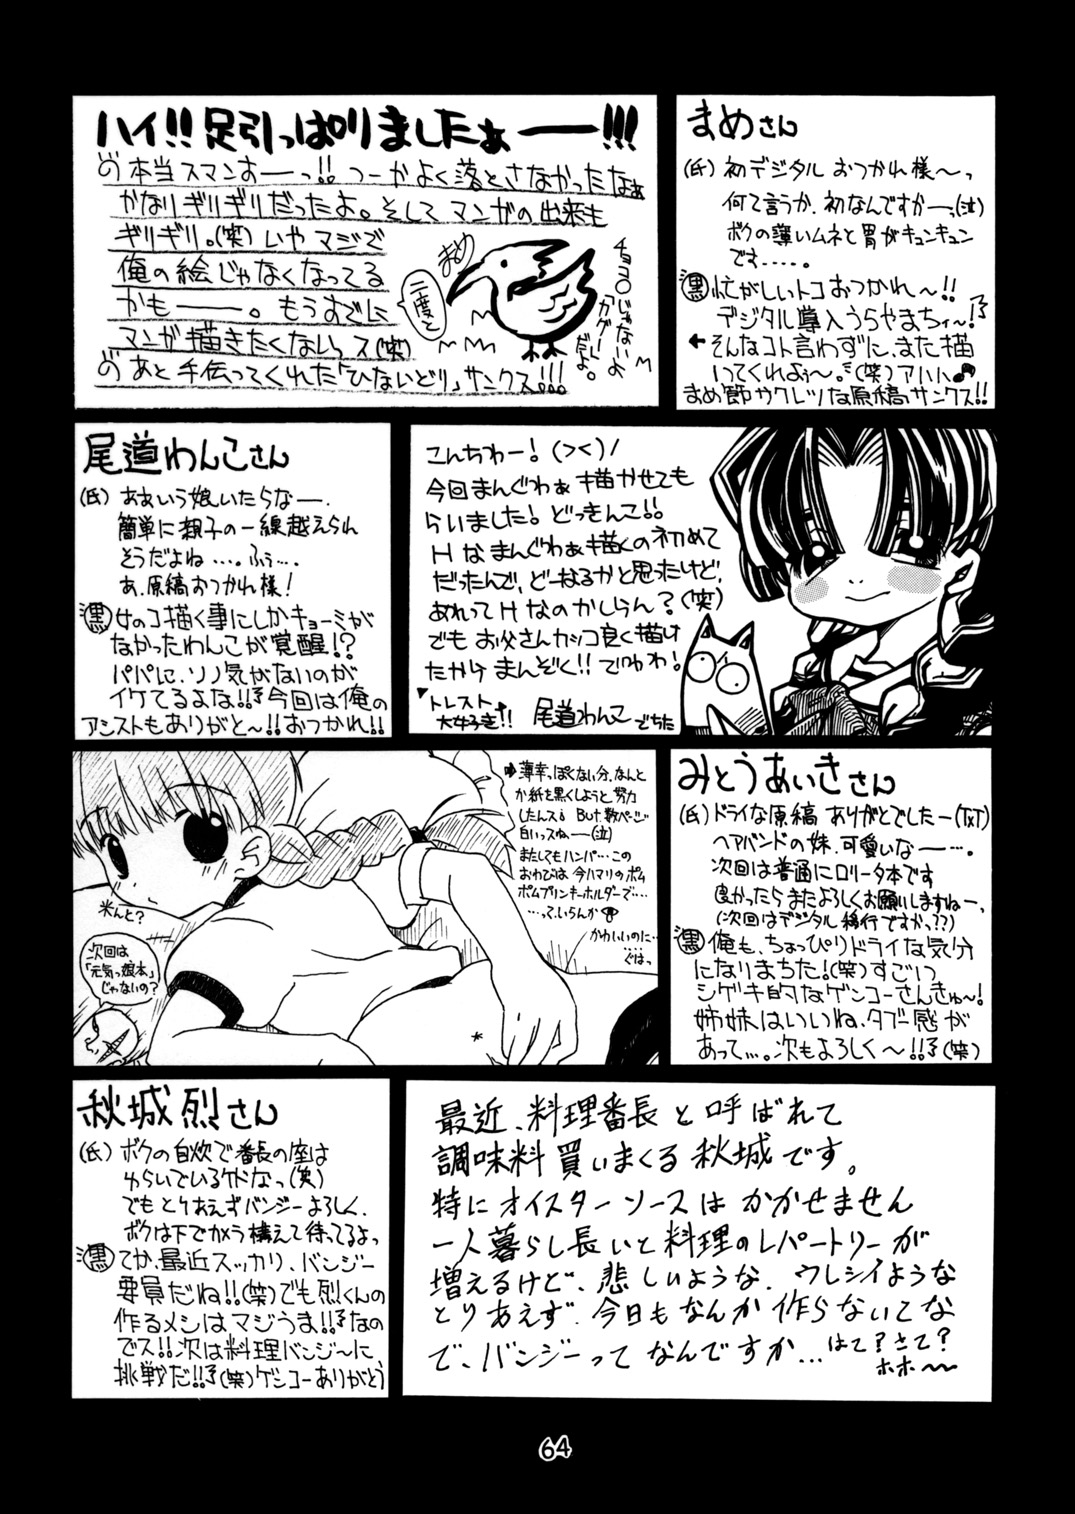 ハイ!!足引っぱりましたぁー!!!
の)本当スマンおーっ!!つーかよく落とさなかったなぁ
かなりギリギリだったよ。そしてマンガの出来も
ギリギリ。(笑)いやマジで
俺の絵じゃなくなってる
かもー。もうすでに
マンガ描きたくないっス(笑)
の)あと手伝ってくれた「ひないどり」サンクス!!!
まめ
二度と
チョコロじゃないよ
「カゲー」だよ。
まめさん
(氏)初デジタルおつかれ様〜っ
何て言うか、初なんですかーっ(泣)
ボクの薄いムネと胃がキュンキュン
です‥‥‥。
(黒)忙がしいトコおつかれ〜!!
デジタル導入うらやまちィ〜!
←そんなコト言わずに、また描
いってくれよぉ〜。(笑)アハハ♪
まめ節サクレツな原稿サンクス!!
尾道わんこさん
(氏)ああいう娘いたらなー、
簡単に親子の一線越えられ
そうだよね‥‥。ふぅ‥‥
あ、原稿おつかれ様!
(黒)女のコ描く事にしかキョーミが
なかったわんこが覚醒!?
パパに、ソノ気がないのが
イケてるよな!!今回は俺の
アシストもありがと〜!!おつかれ!!
こんちわー!(>く)/
今回まんぐわぁ描かせても
らいました!どっきんこ!!
Hなまんぐわぁ描くの初めて
だったんで、どーなるかと思ったけど、
あれってHなのかしらん?(笑)
でもお父さんカッコ良く描け
たかけまんぞく!!でわわ!
トレスト
大好き!! 尾道わんこでちた
薄幸っぽくない分、なんと
か紙を黒くしようと努力
したんスよ But.数ページ
白いっスねー(泣)
またしてもハンパ‥‥この
おわびは今ハマりのポム
ポムプリンキーホルダーで‥‥
‥‥って、いらんか
かわいいのに‥‥
ぐはっ
米んと?
次回は
「元気っ娘本」
じゃないの?
みとうあいきさん
(氏)ドライな原稿ありがとでしたー(TxT)
ヘアバンドの妹、可愛いなー‥‥。
次回は普通にロリータ本です
良かったらまたよろしくお願いしますねーっ
(次回はデジタル移行ですかっ??)
(黒)俺も、ちょっぴりドライな気分
になりまちた!(笑)すごいっ
シゲキ的なゲンコーさんきゅ〜!
姉妹はいいね、タブー感が
あって‥‥。次もよろしく〜!!(笑)
秋城烈さん
(氏)ボクの自炊で番長の座は
ゆらいでいるケドなっ(笑)
でもとりあえずバンジーよろしく、
ボクは下でカメラ構えて待ってるよっ
(黒)てか、最近スッカリ、バンジー
要員だね!!(笑)でも烈くんの
作るメシはマジうま!!なの
でス!!次は料理バンジ〜に
挑戦だ!!(笑)ゲンコーありがとう
最近、料理番長と呼ばれて
調味料買いまくる秋城です。
特にオイスターソースはかかせません
一人暮らし長いと料理のレパートリーが
増えるけど、悲しいような、ウレシイような
とりあえず、今日もなんか作らないてな
で、バンジーってなんですか‥‥はて?さて?
ホホ〜
64